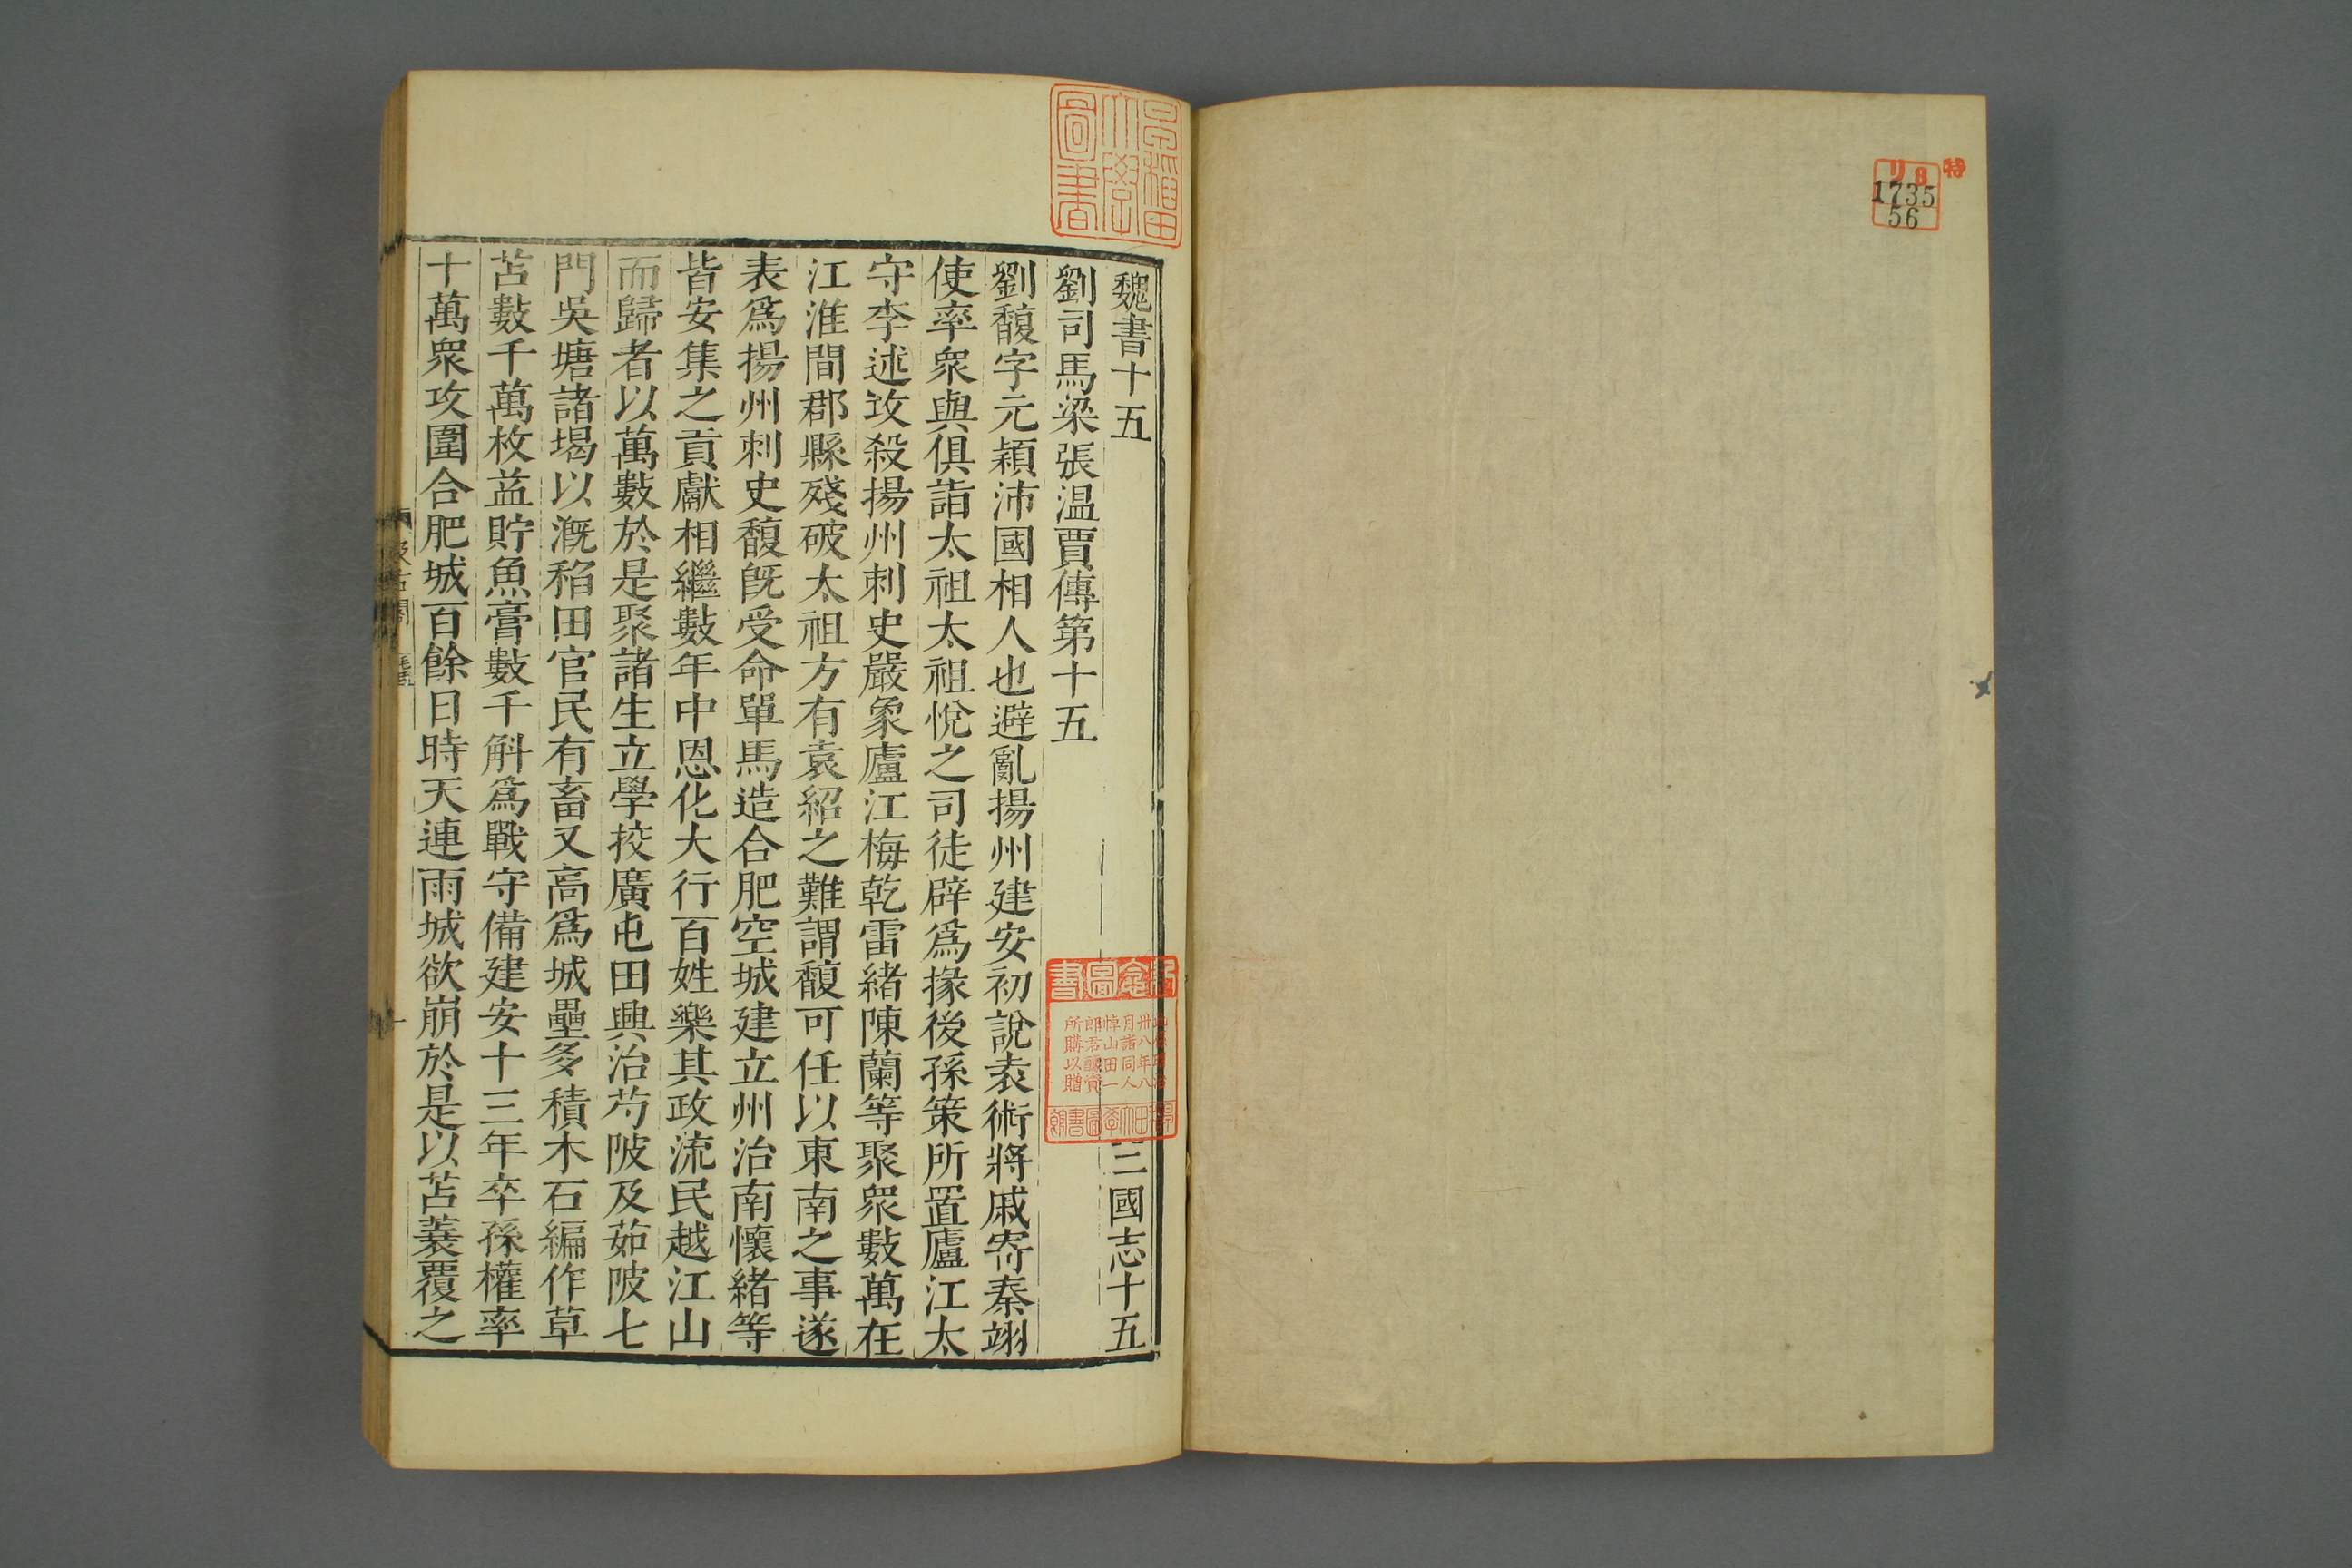 特
リ8
1735
56
早稲田
大學
圖書
魏書十五 三國志十五
劉司馬梁張温賈傳第十五
劉馥字元穎沛國相人也避亂揚州建安初說袁術將戚寄秦翊
使率衆與俱詣太祖太祖悅之司徒辟爲掾後孫策所置廬江太
守李述攻殺揚州刺史嚴象廬江梅乾雷緒陳蘭等聚衆數萬在
江淮間郡縣殘破太祖方有袁紹之難謂馥可任以東南之事遂
表爲揚州刺史馥旣受命單馬造合肥空城建立州治南懷緒等
皆安集之貢獻相繼數年中恩化大行百姓樂其政流民越江山
而歸者以萬數於是聚諸生立學挍廣屯田興治芍陂及茹陂七
門吳塘諸堨以溉稻田官民有畜又高爲城壘多積木石編作草
苫數千萬枚益貯魚膏數千斛爲戰守備建安十三年卒孫權率
十萬衆攻圍合肥城百餘日時天連雨城欲崩於是以苫蓑覆之
卅八年八
月諸同人
悼山田一
郎君醵資
所購以贈
汲古閣